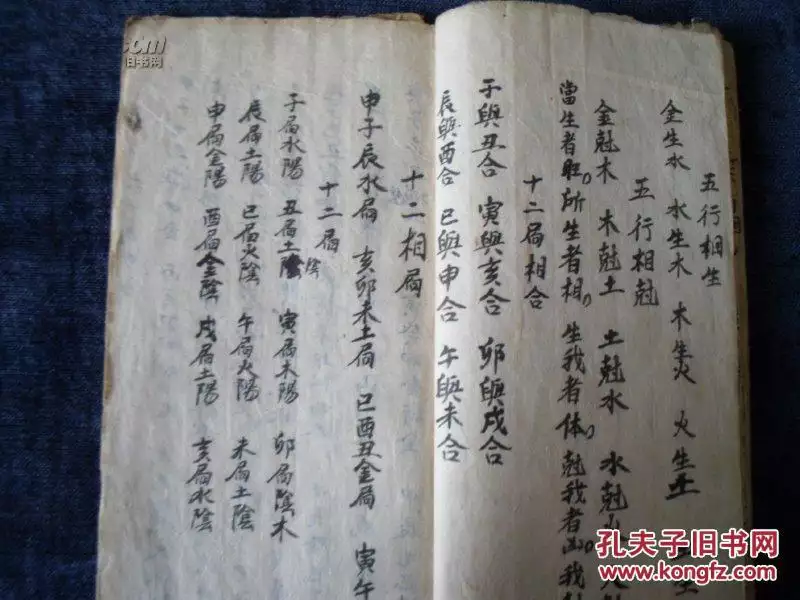 五行相生
金生水 水生木 木生火 火生土
五行相尅
金尅木 木尅土 土尅水 水尅火
當生者旺 所生者相 生我者体 尅我者凶 我
十二局相合
子與丑合 寅與亥合 卯與戌合
辰與酉合 巳與申合 午與未合
十二相局
申子辰水局 亥卯未土局 巳酉丑金局 寅午
十二局
子局水陽 丑局土陰 寅局木陽 卯局陰木
辰局土陽 巳局火陰 午局火陽 未局土陰
申局金陽 酉局金陰 戌局土陽 亥局水陰
com
旧书网
孔夫子旧书网
KONGFZ.COM